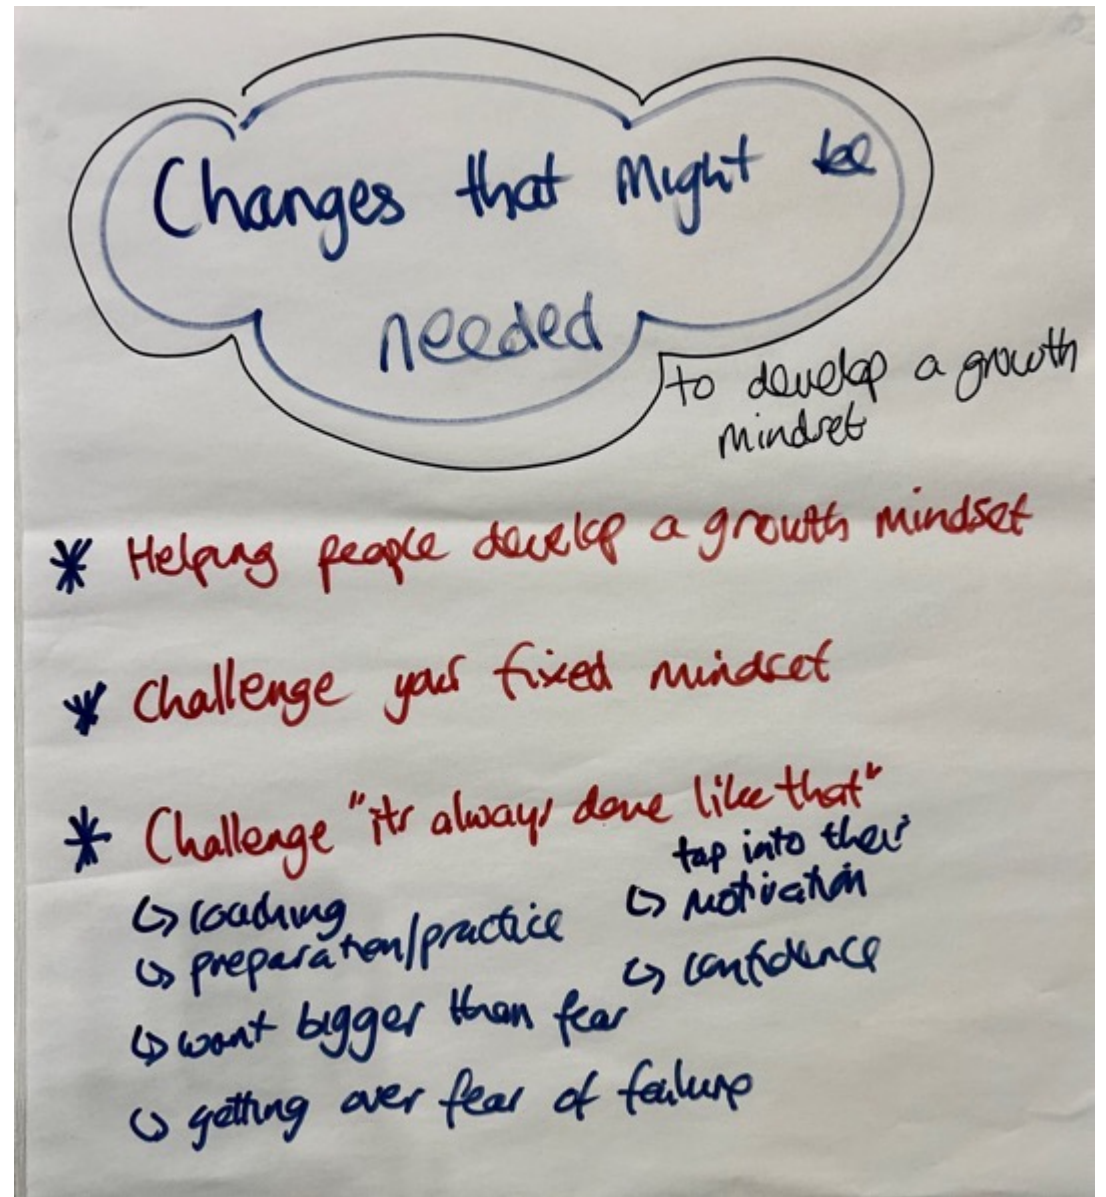 Changes that might be
needed
to develop a growth
mindset
* Helping people develop a growth mindset
* Challenge your fixed mindset
* Challenge "its always done like that"
↳ coaching
↳ preparation/practice
↳ want bigger than fear
↳ getting over fear of failure
tap into their
↳ motivation
↳ confidence